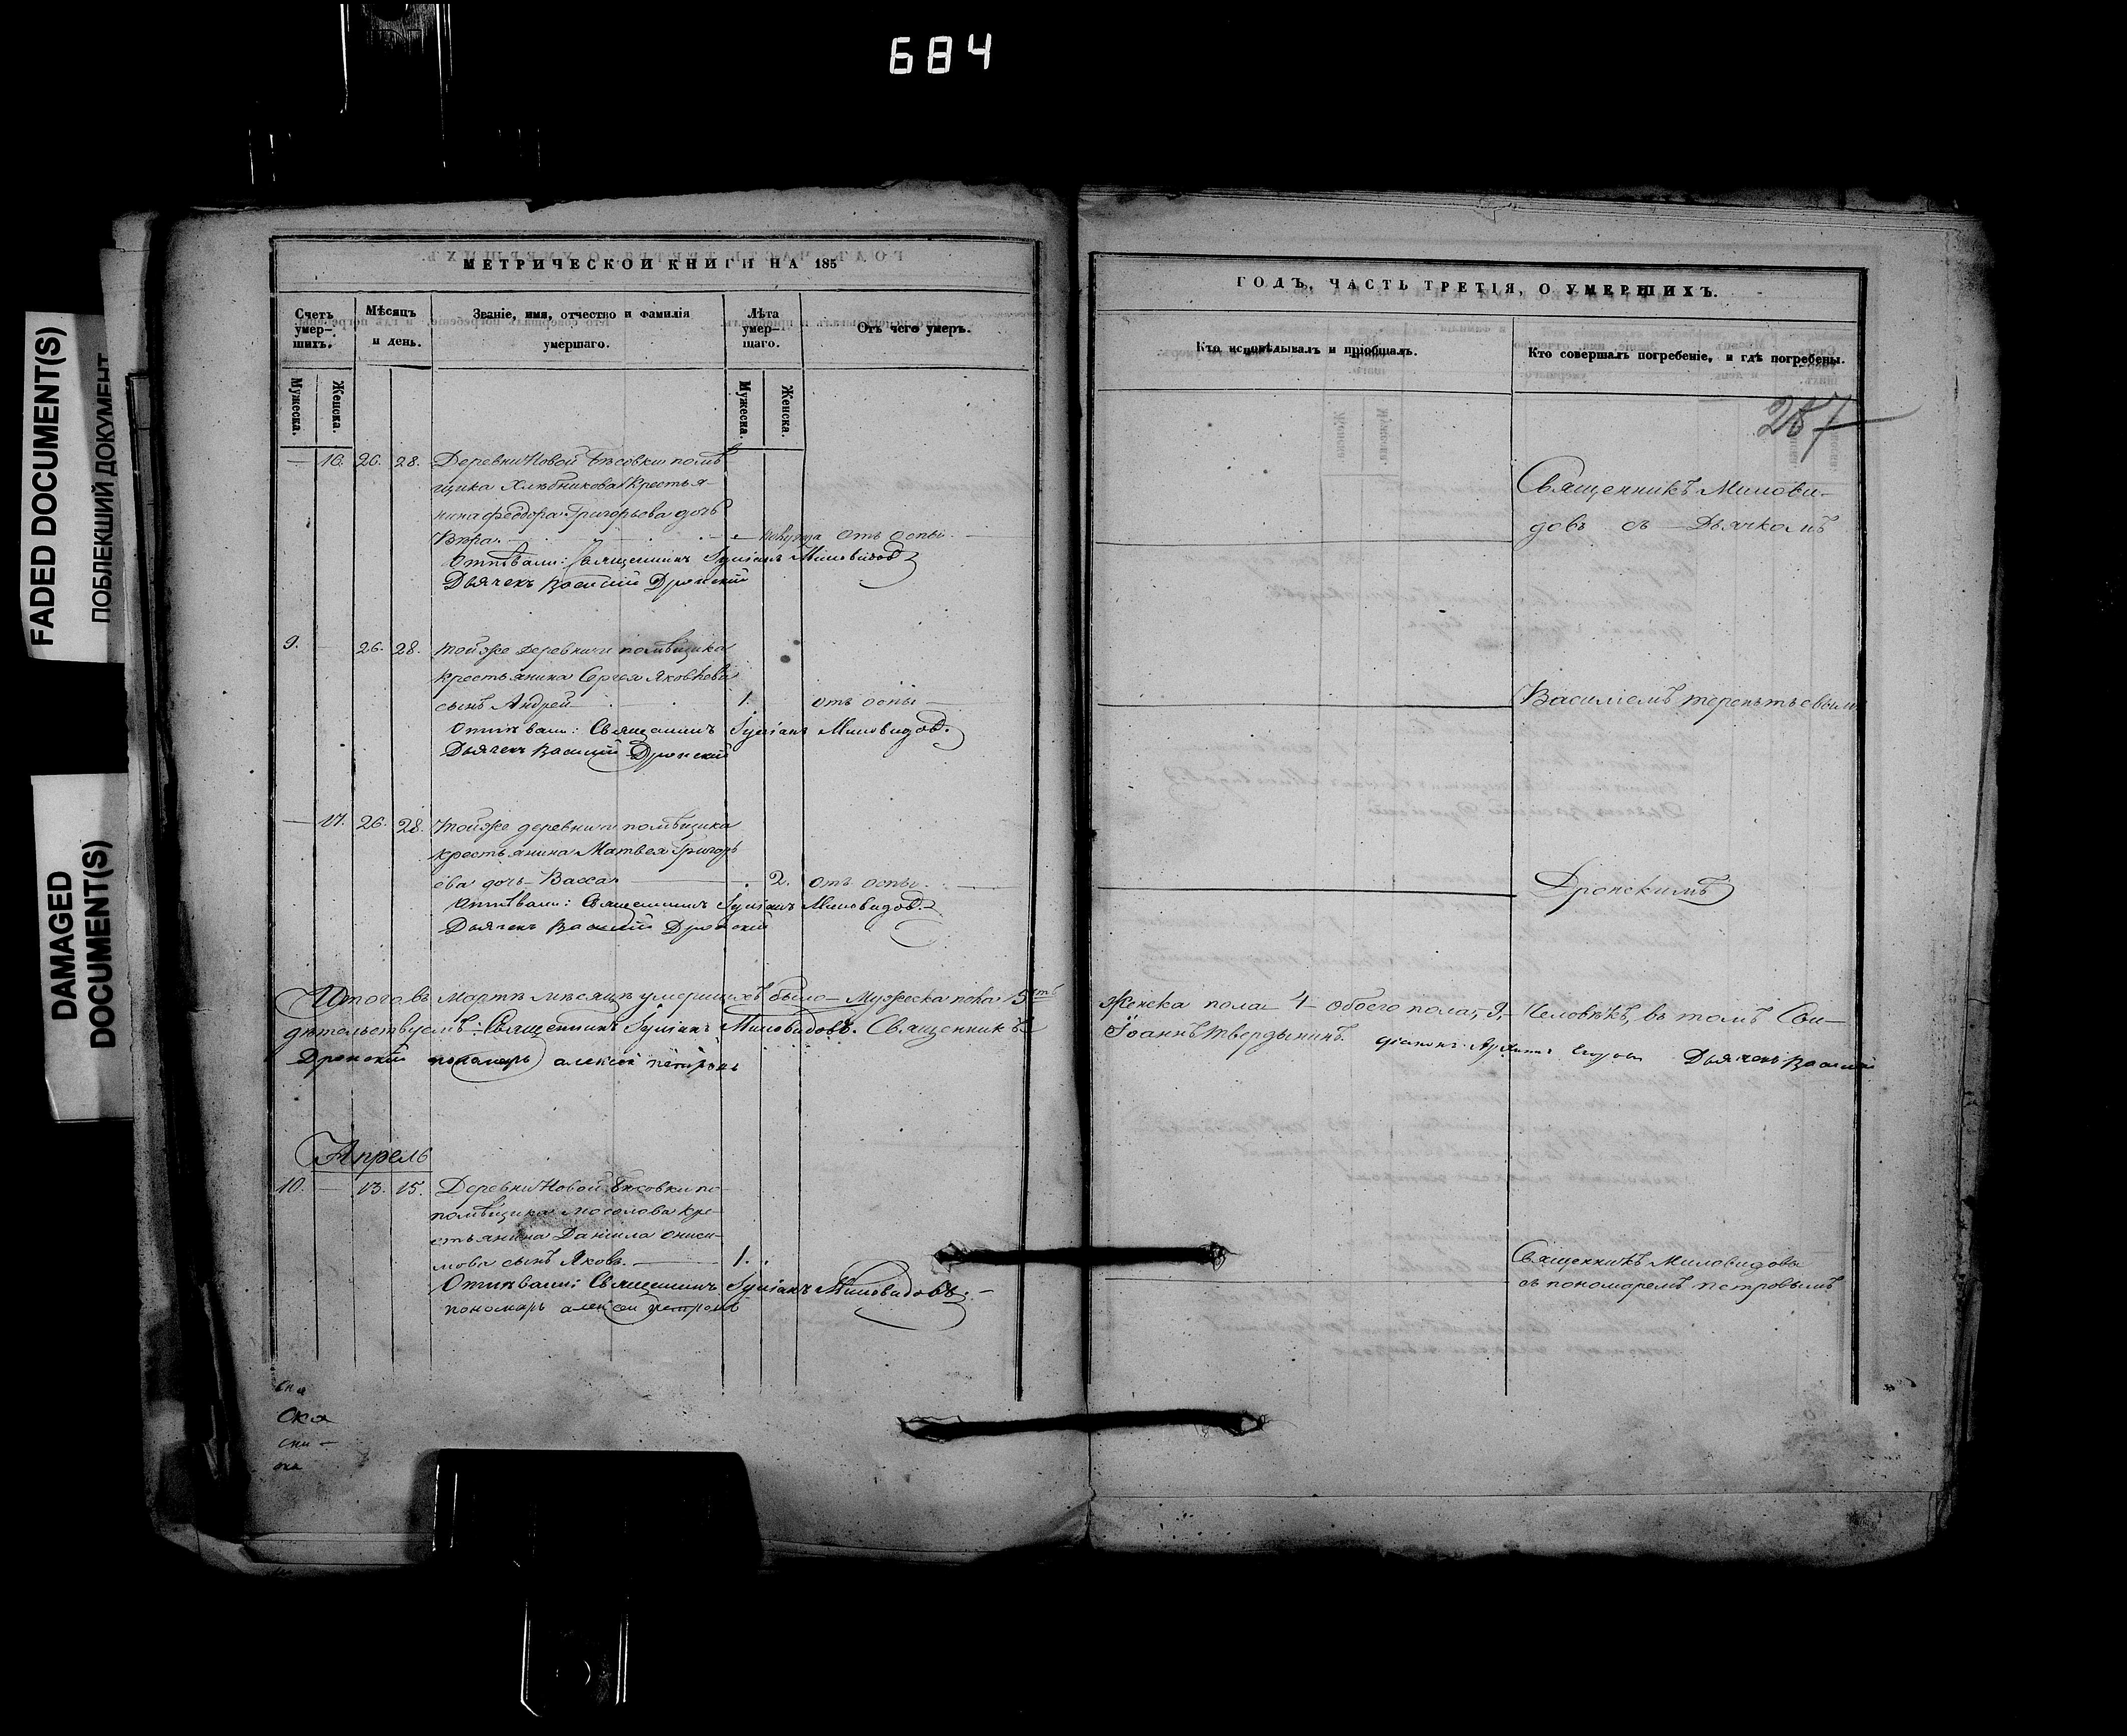 684
FADED DOCUMENT(S)
ПОБЛЕКШИЙ ДОКУМЕНТ
DAMAGED
DOCUMENT(S)
МЕТРИЧЕСКОЙ КНИГИ НА 185
Счетъ умер-шихъ.
Мѣсяцъ и день.
Званіе, имя, отчество и фамилія умершаго.
Лѣта умер-шаго.
Отъ чего умеръ.
Мужеска.
Женска.
Мужеска.
Женска.
— 16. 26. 28. Деревни Новой помѣ
щика Хлѣбникова Крестья
нина Феодора Григорьева дочь
Вѣра отъ оспы.
Отпѣвали: Священникъ Іуліанъ Миловидов
Дьячекъ Василій Дронскій
9. — 26. 28. Тойже деревни и помѣщика
крестьянина Сергея Яковлева
сынъ Андрей 1. отъ оспы
Отпѣвали: Священникъ Іуліанъ Миловидов.
Дьячекъ Василій Дронскій
— 17. 26. 28. Тойже деревни и помѣщика
крестьянина Матвея Григорь
ева дочь Васса 2. отъ оспы.
Отпѣвали: Священникъ Іуліанъ Миловидов.
Дьячекъ Василій Дронскій
Итого въ Мартѣ мѣсяцѣ умершихъ было — Мужеска пола 5
дѣтельствуемъ: Священникъ Іуліанъ Миловидовъ. Священникъ
Дронскій пономарь алексей петровъ
Апрель
10. — 13. 15. Деревни Новой
помѣщика Мосолова кре-
стьянина ДаніилаОниси-
мова сынъ Яковъ. 1.
Отпѣвали: Священникъ Іуліанъ Миловидовъ.
пономарь алексеи петровъ
ГОДЪ, ЧАСТЬ ТРЕТІЯ, О УМЕРШИХЪ.
Кто исповѣдывалъ и пріобщалъ.
Кто совершалъ погребеніе, и гдѣ погребены.
257
Священникъ Милови-
довъ съ Дьячкомъ
Василіемъ
Дронскимъ
Женска пола 4 — обоего пола, 9, — Человѣкъ, въ томъ Сви-
Іоаннъ Твердынинъ. Діаконъ Дьячекъ Василій
Священникъ Миловидовъ
съ пономаремъ петровымъ